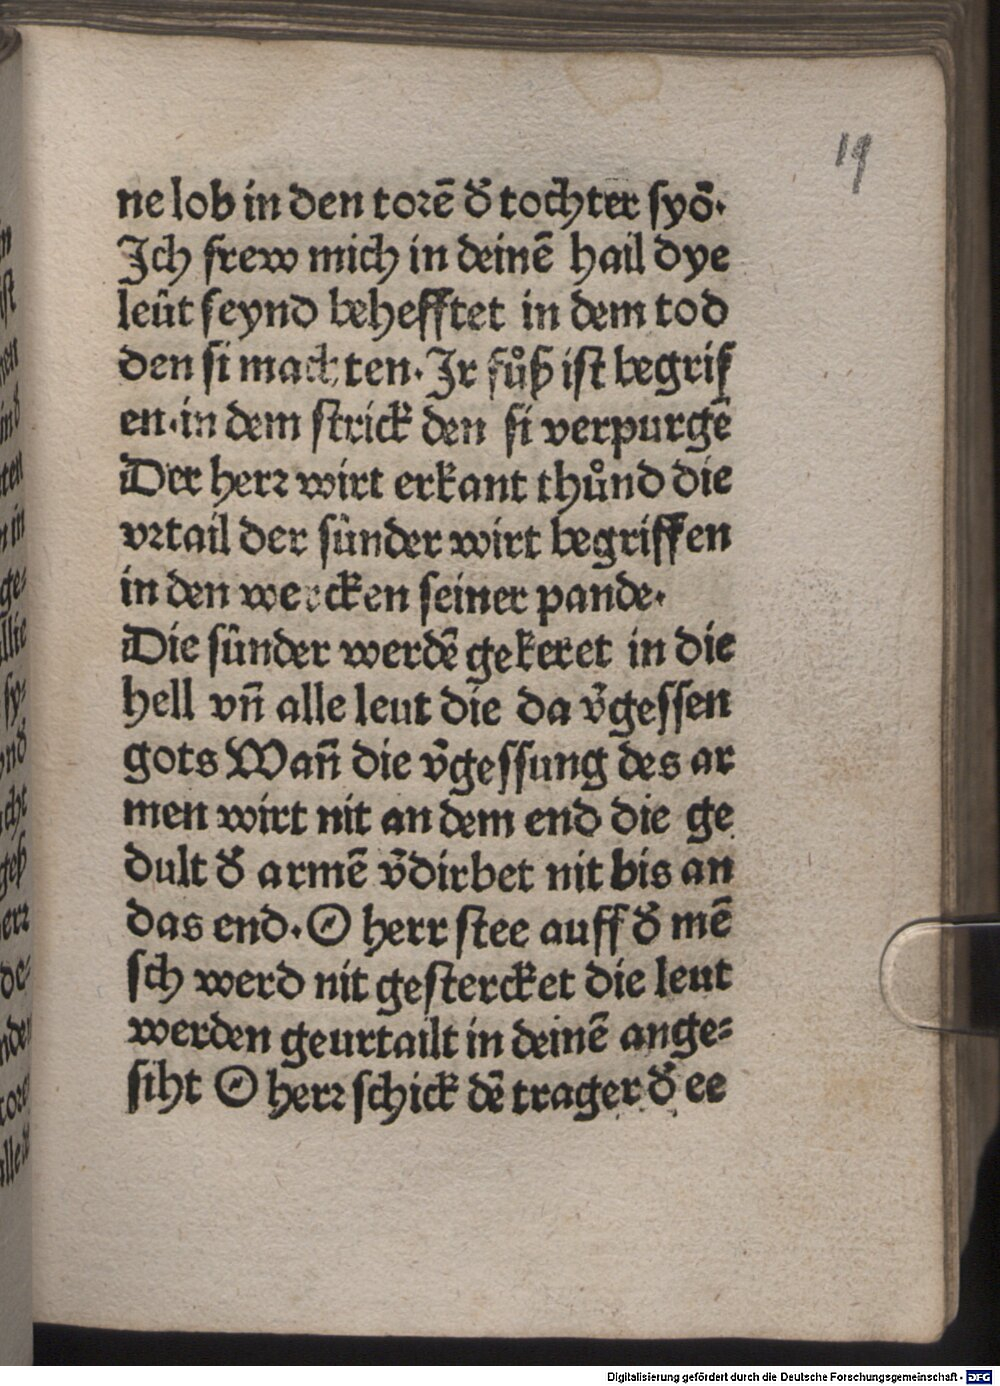 19
ne lob in den torē d̄ tochter syō.
Jch frew mich in deinē hail dye
leût seynd behefftet in dem tod
den si machten. Jr fůß ist begrif
en. in dem strick den si verpurgē
Der herr wirt erkant thůnd die
vrtail der sûnder wirt begriffen
in den wercken seiner pande.
Die sûnder werdē gekeret in die
hell vn̄ alle leut die da v̄gessen
gots Wan̄ die v̄gessung des ar
men wirt nit an dem end die ge
dult d̄ armē v̄dirbet nit bis an
das end. O herr stee auff d̄ mē
sch werd nit gestercket die leut
werden geurtailt in deinē ange⸗
siht O herr schick dē trager d̄ ee
Digitalisierung gefördert durch die Deutsche Forschungsgemeinschaft - DFG